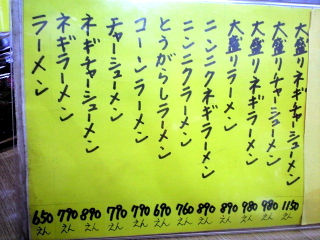 大盛りネギチャーシューメン 1150えん
大盛りチャーシューメン 980えん
大盛りネギラーメン 980えん
大盛りラーメン 890えん
ニンニクネギラーメン 890えん
ニンニクラーメン 760えん
とうがらしラーメン 690えん
コーンラーメン 790えん
チャーシューメン 790えん
ネギチャーシューメン 890えん
ネギラーメン 790えん
ラーメン 650えん